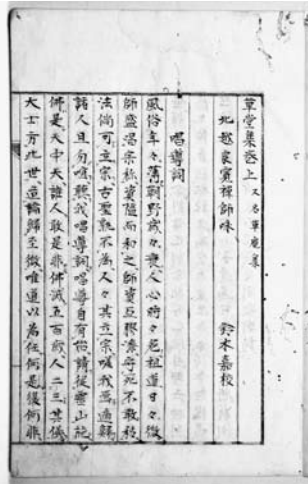 草堂集巻上 又名草庵集
北越良寛禪師咏
鈴木嘉校
唱導詞
風俗年々薄朝野歳々衰人心時々危祖道日々微
師盛唱宗称資隨而和之師資互膠漆守死不敢移
法倘可立宗古聖孰不為人々其立宗嗟我焉適歸
諸人且勿喧聴我唱導詞唱導自有始請從靈山施
佛是天中天誰人敢是非佛滅五百歳人二三其儀
大士方此世造論歸至微唯道以為任何是復何非